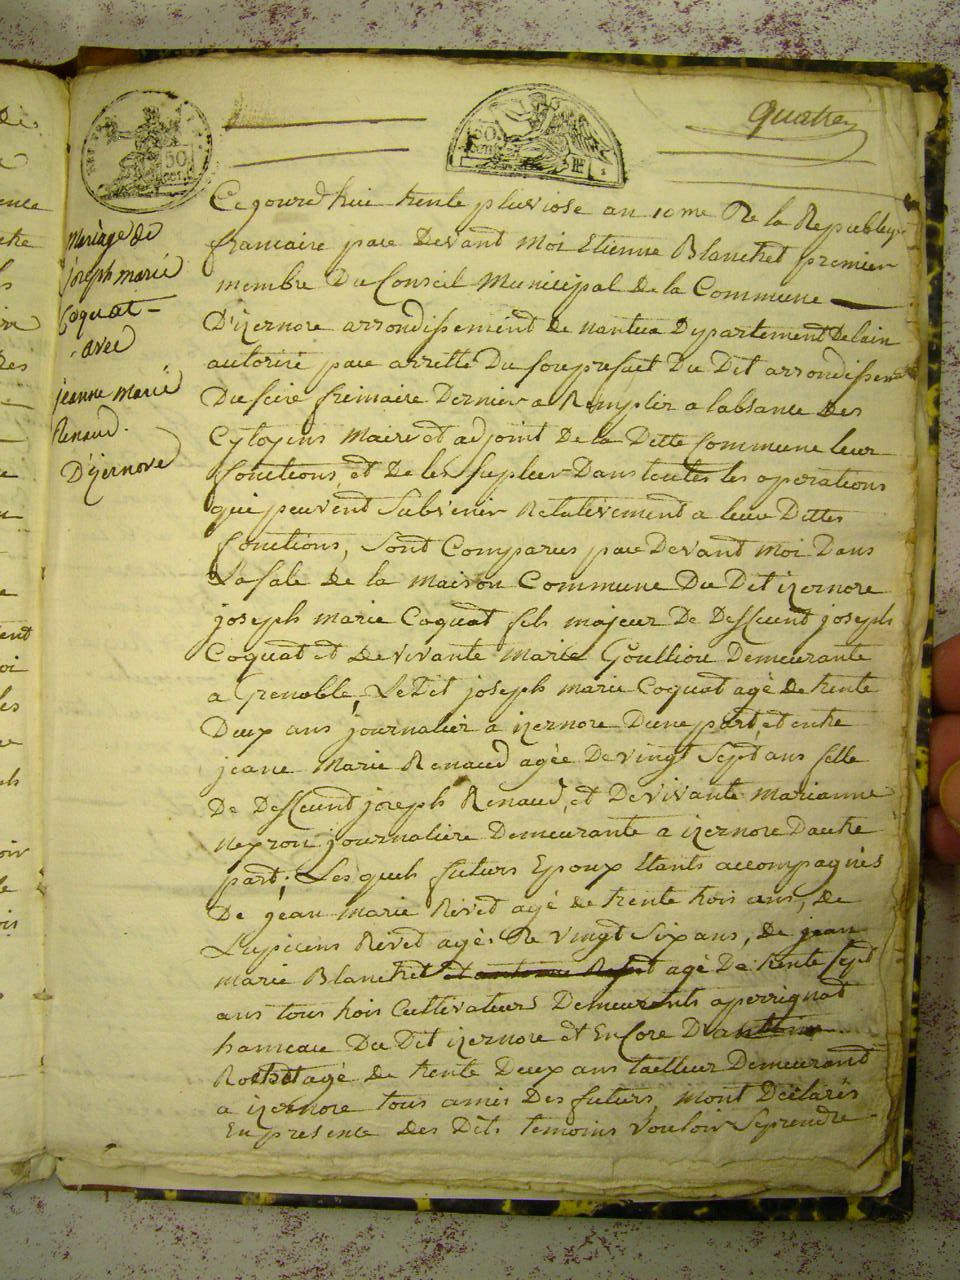 quatre
Mariage de
joseph marie
Coquat
avec
jeanne marie
Renaud.
D'izernore
Cejourd'huy trente pluviose an 10me De la Republiq
francaise par Devant Moi Etienne Blanchet premier
membre Du Conseil Municipal De la Commune
D'izernore arrondissement de nantua Departement Delain
autorisé par arretté Du souprefait Du Dit arrondissem
Du seize frimaire Dernier a Remplir a labsance Des
Cytoyens Maire et adjoint De la Ditte Commune leur
fonctions, et De les supleer Dans toutes les operations
qui peuvent Subvenir Relativement a leur Dittes
fonctions, Sont Comparus par Devant moi Dans
La sale de la maison Commune Du Dit izernore
joseph marie Coquat fils majeur De Deffunt joseph
Coquat et De vivante marie Goulliou Demeurante
a Grenoble, Le Dit joseph marie Coquat agé de trente
Deux ans journalier a izernore Dune part, et entre
jeane Marie Renaud agée De vingt Sept ans fille
De Deffunt joseph Renaud, et De vivante marianne
neyron journaliere Demeurante a izernore Dautre
part; Les quels futurs Epoux Etants accompagnés
De jean marie Rivet agé de trente trois ans, de
Lupicens Rivet agés De vingt Six ans, De jean
marie Blanchet agé De trente sept
ans tous trois Cultivateurs Demeurants a perrignat
hameau Du Dit izernore et Encore D'antoine
Rochet agé de trente Deux ans tailleur Demeurand
a izernore tous amis Des futurs, mont Déclarés
En presence des Dits temoins Vouloir Seprendre